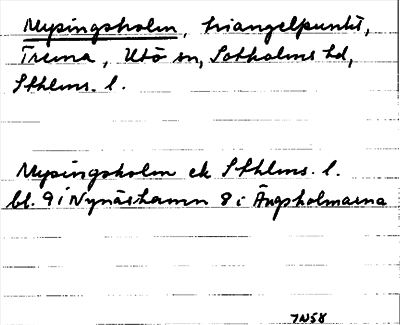 Mysingsholm, triangelpunkt,
Trema, Utö sn, Sotholms hd,
Sthlms. l.
Mysingsholm ek Sthlms. l.
bl. 9 i Nynäshamn 8 i Ängsholmarna
7N58